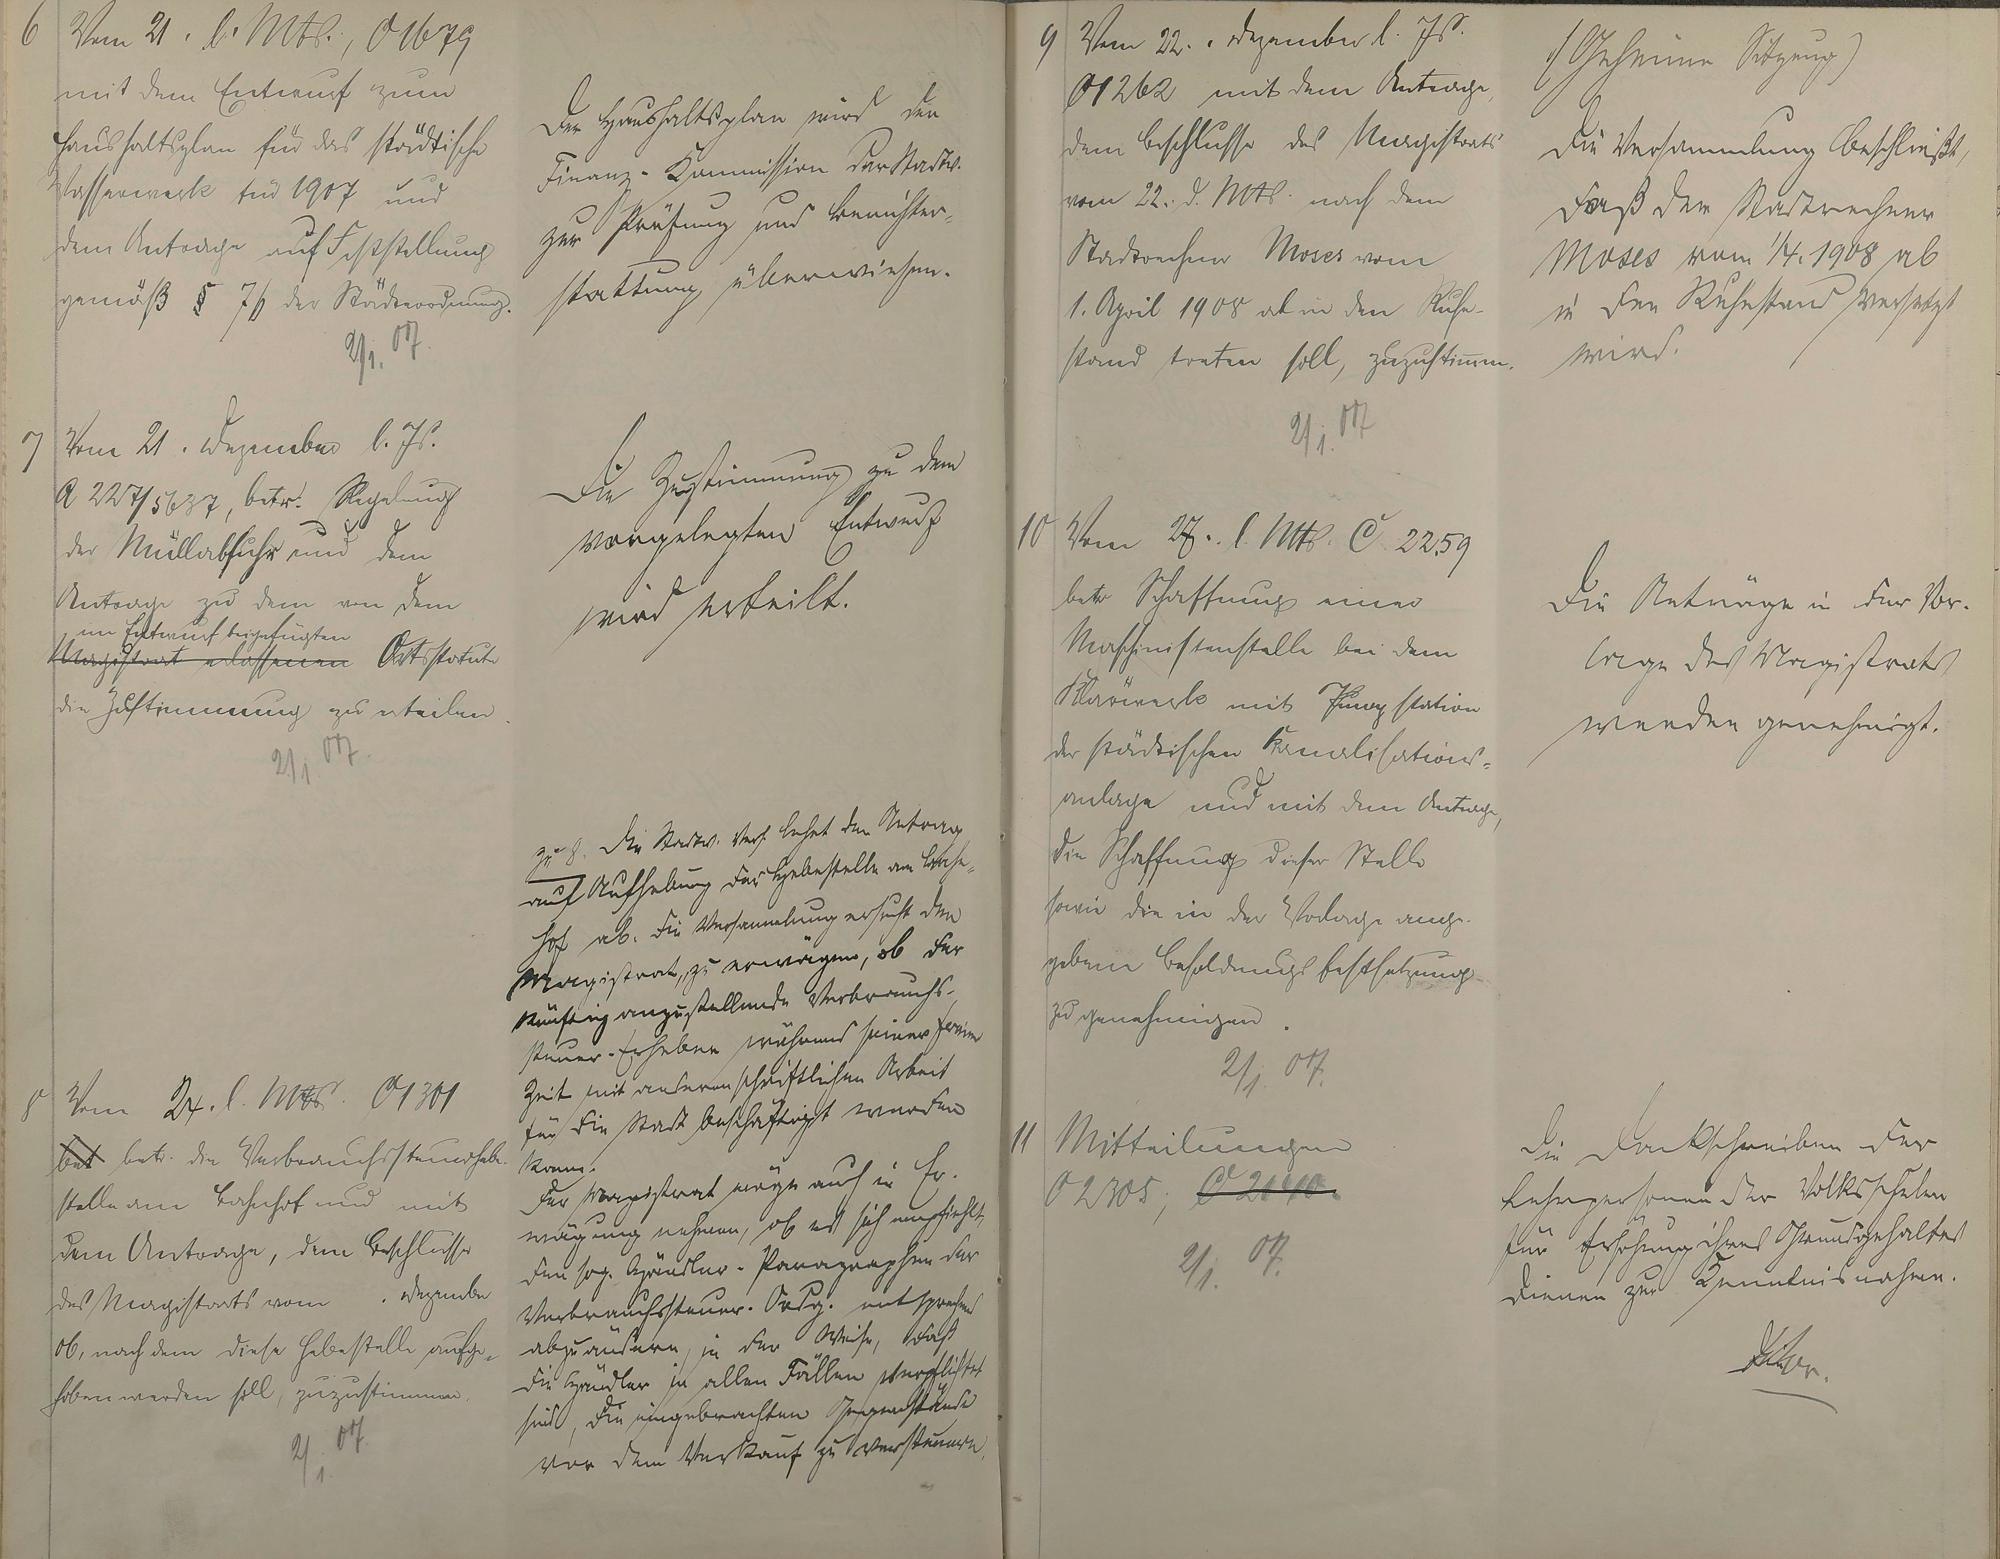 6 Vom 21. l. Mts., O 1679
mit dem Entwurf zum
Haushaltsplan für das städtische
Wasserwerk für 1907 und
dem Antrage auf Feststellung
gemäß § 76 der Städteordnung.
2/1. 07.
Der Haushaltsplan wird der
Finanz-Kommission der Stadtv.
zur Prüfung und Berichter-
stattung überwiesen.
7 Vom 21. Dezember l. Js.
A 227/5637, betr. Regelung
der Müllabfuhr und dem
Antrage zu dem von dem
im Entwurf beigefügten
Magistrat erlassenen Ortsstatute
die Zustimmung zu erteilen.
2/1 07.
Die Zustimmung zu dem
vorgelegten Entwurf
wird erteilt.
8 Vom 24. l. Mts. O 1301
bet betr. die Verbrauchssteuerhebe-
stelle am Bahnhof und mit
dem Antrage, dem Beschlusse
des Magistrats vom . Dezember
ob, nach dem diese Hebestelle aufge-
hoben werden soll, zuzustimmen.
2/1. 07
zu 8. Die Stadtv. Vers. lehnt den Antrag
auf Aufhebung der Hebestelle am Bahn-
hof ab. Die Versammlung ersucht den
Magistrat, zu erwägen, ob der
künftig anzustellende Verbrauchs-
steuer-Erheber während seiner freien
Zeit mit anderen schriftlichen Arbeit
für die Stadt beschäftigt werden
kann.
Der Magistrat möge auch in Er-
wägung nehmen, ob es sich empfiehlt,
den sog. Händler-Paragraphen der
Verbrauchssteuer-Ordg. entsprechend
abzuändern, in der Weise, daß
die Händler in allen Fällen verpflichtet
sind, die eingebrachten Gegenstände
vor dem Verkauf zu versteuern.
9 Vom 22. Dezember l. Js.
O 1262 mit dem Antrage,
dem Beschlusse des Magistrats
vom 22. d. Mts. nach dem
Stadtrechner Moses vom
1. April 1908 ab in den Ruhe-
stand treten soll, zuzustimm.
2/1. 07
(Geheime Sitzung)
Die Versammlung beschließt,
daß der Stadtrechner
Moses vom 1/4. 1908 ab
in den Ruhestand versetzt
wird.
10 Vom 27. l. Mts. C 2259
betr. Schaffung einer
Maschinistenstelle bei dem
Klärwerk mit Pumpstation
der städtischen Kanalisations-
anlage und mit dem Antrage,
die Schaffung dieser Stelle
sowie die in der Vorlage ange-
gebene Besoldungsfestsetzung
zu genehmigen.
2/1. 07.
Die Anträge in der Vor-
lage des Magistrats
werden genehmigt.
11 Mitteilungen
O 2305, C 2040.
2/1. 07.
Die Dankschreiben der
Lehrpersonen der Volksschulen
für Erhöhung ihres Grundgehaltes
dienen zur Kenntnisnahme.